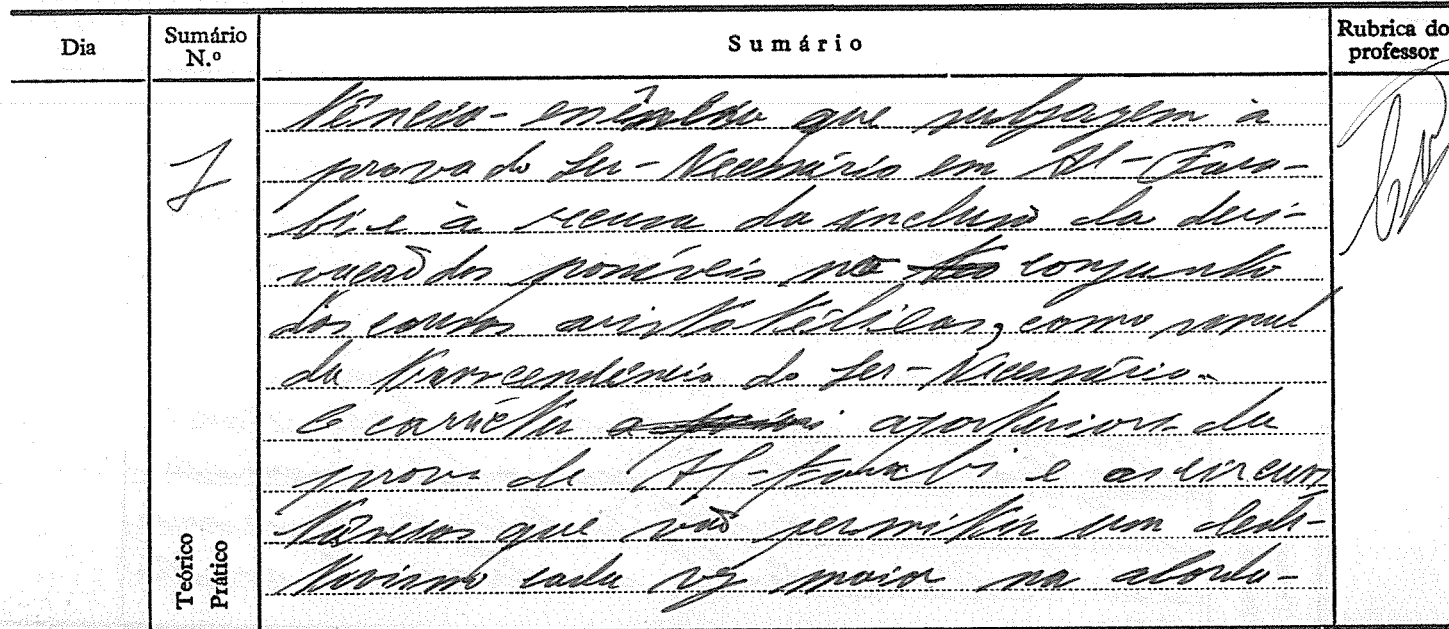 Dia
Sumário N.º
Sumário
Rubrica do professor
tência-essência que subjazem à
prova do Ser-Necessário em Al-Fara-
bi e à recusa da inclusão da deri-
vação dos possíveis no conjunto
das causas aristotélicas, como sinal
da transcendência do Ser-Necessário.
O carácter aposteriori da
prova de Al-Farabi e as circuns
tâncias que vão permitir um dedu-
tivismo cada vez maior na aborda-
Teórico
Prático